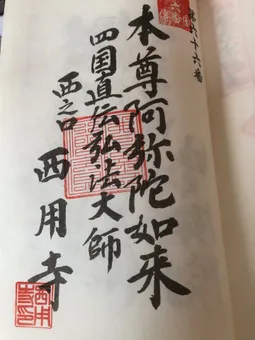 第六十六番
本尊阿弥陀如来
四国直伝弘法大師
西之口 西用寺